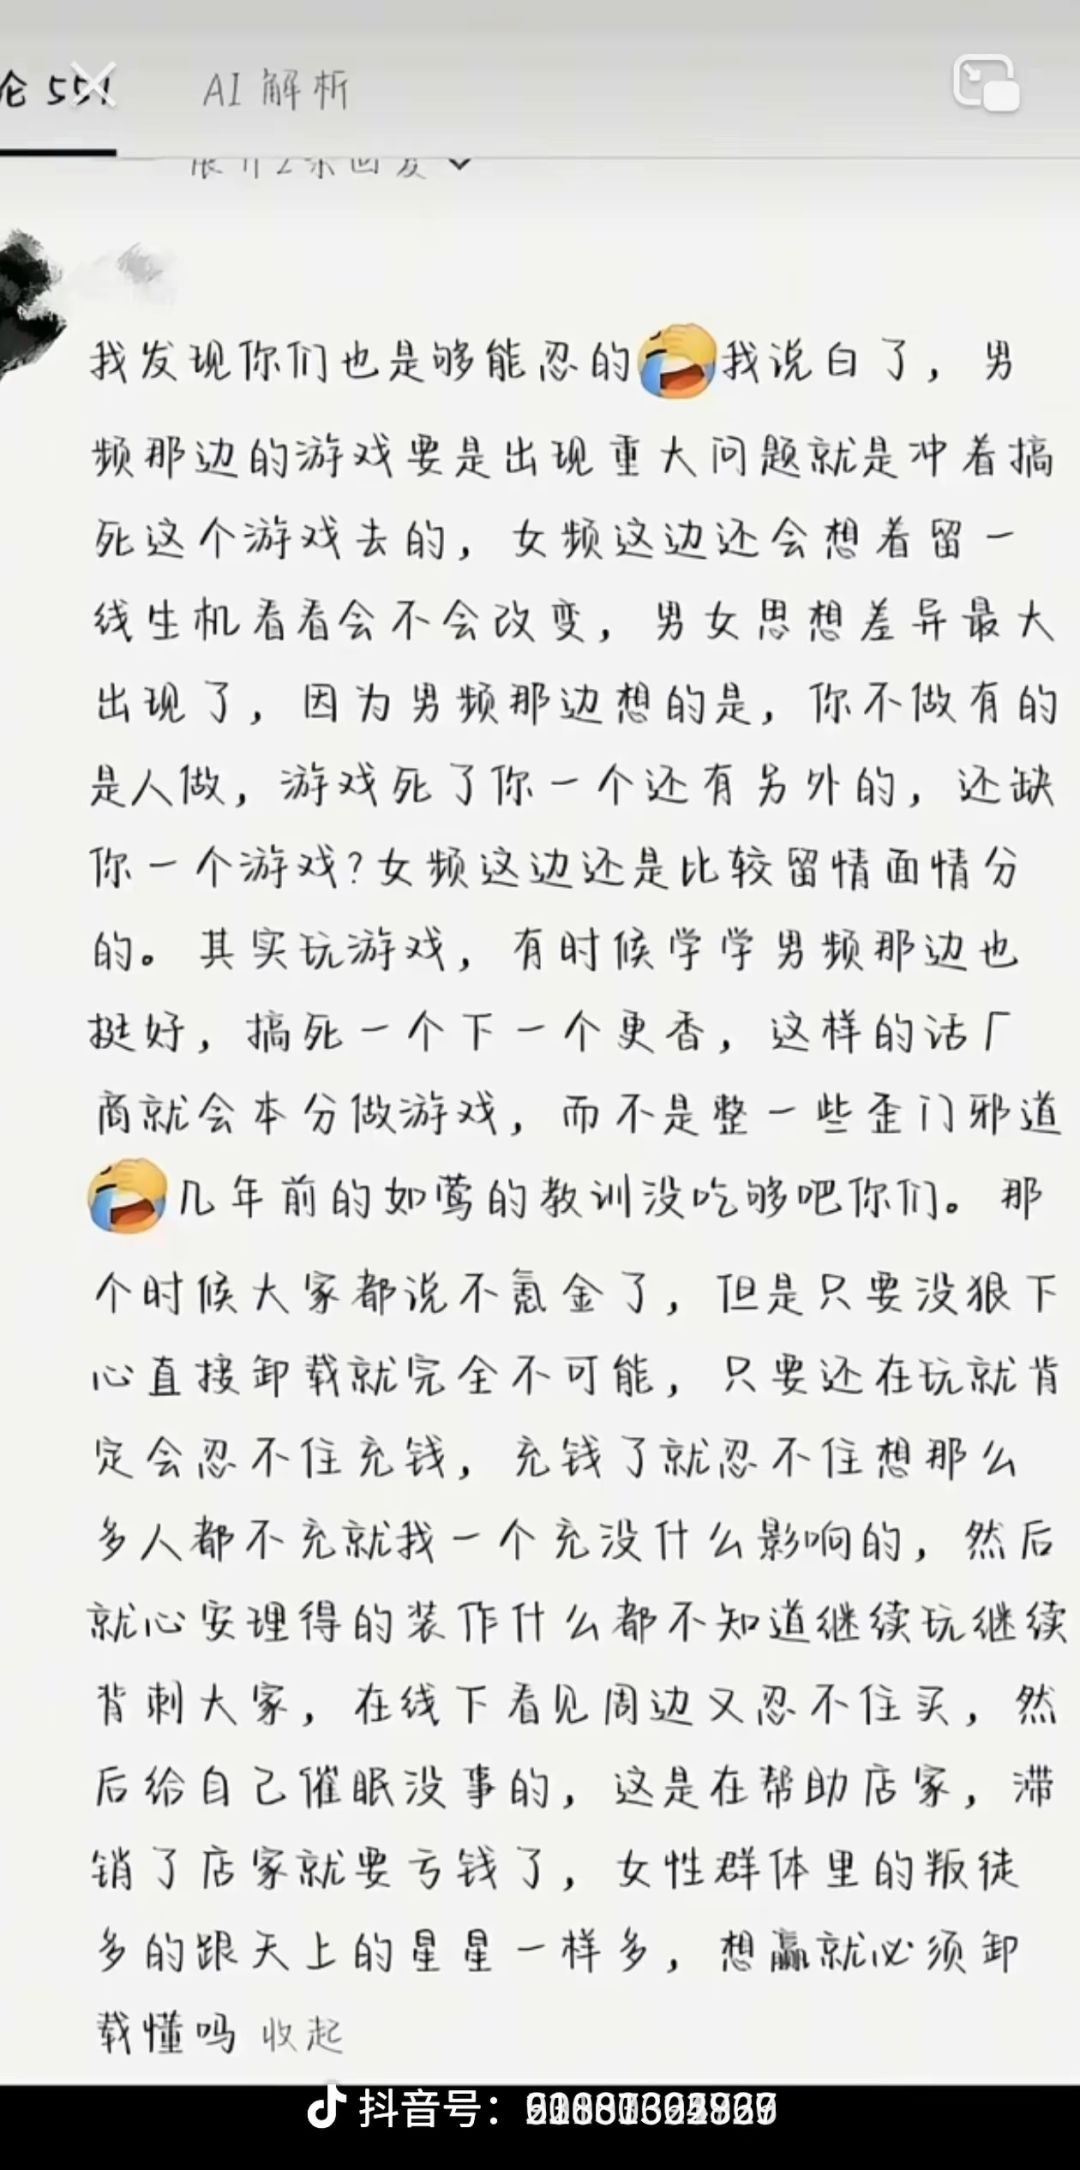 论 551
AI 解析
展开2条回复
我发现你们也是够能忍的🤦我说白了，男
频那边的游戏要是出现重大问题就是冲着搞
死这个游戏去的，女频这边还会想着留一
线生机看看会不会改变，男女思想差异最大
出现了，因为男频那边想的是，你不做有的
是人做，游戏死了你一个还有另外的，还缺
你一个游戏?女频这边还是比较留情面情分
的。其实玩游戏，有时候学学男频那边也
挺好，搞死一个下一个更香，这样的话厂
商就会本分做游戏，而不是整一些歪门邪道
🤦几年前的如鸢的教训没吃够吧你们。那
个时候大家都说不氪金了，但是只要没狠下
心直接卸载就完全不可能，只要还在玩就肯
定会忍不住充钱，充钱了就忍不住想那么
多人都不充就我一个充没什么影响的，然后
就心安理得的装作什么都不知道继续玩继续
背刺大家，在线下看见周边又忍不住买，然
后给自己催眠没事的，这是在帮助店家，滞
销了店家就要亏钱了，女性群体里的叛徒
多的跟天上的星星一样多，想赢就必须卸
载懂吗 收起
抖音号：